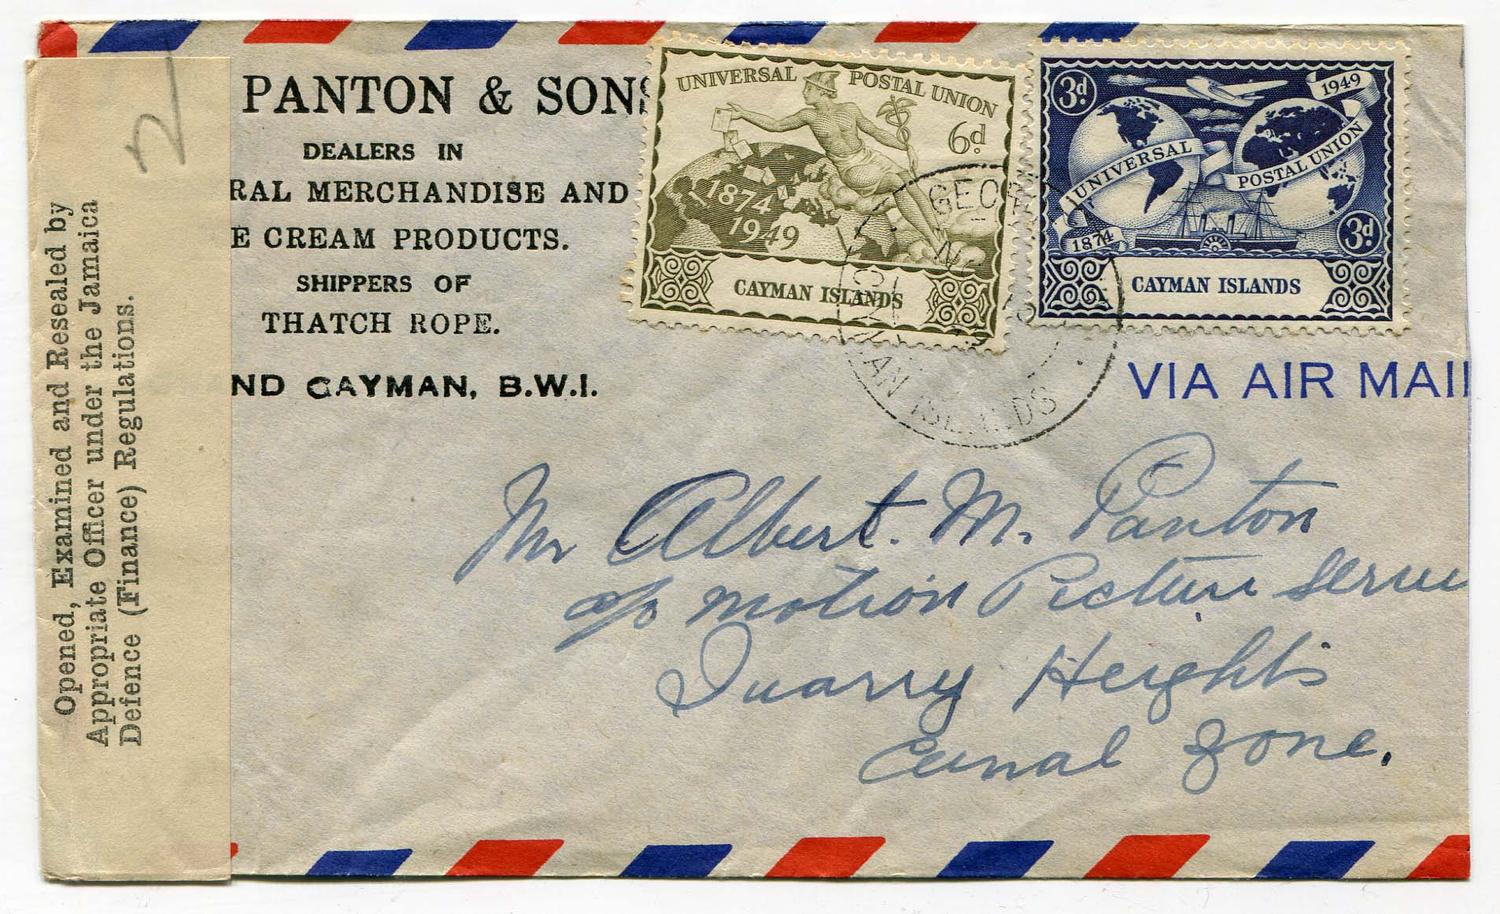 PANTON & SONS
DEALERS IN
RAL MERCHANDISE AND
E CREAM PRODUCTS.
SHIPPERS OF
THATCH ROPE.
ND CAYMAN, B.W.I.
Opened, Examined and Resealed by
Appropriate Officer under the Jamaica
Defence (Finance) Regulations.
2
UNIVERSAL POSTAL UNION
6d
1874
1949
CAYMAN ISLANDS
3d
1949
UNIVERSAL POSTAL UNION
1874
3d
CAYMAN ISLANDS
GEOR
CAYMAN ISLANDS
VIA AIR MAIL
Mr Albert. M. Panton
c/o Motion Picture Servi
Quarry Heights
Canal Zone.